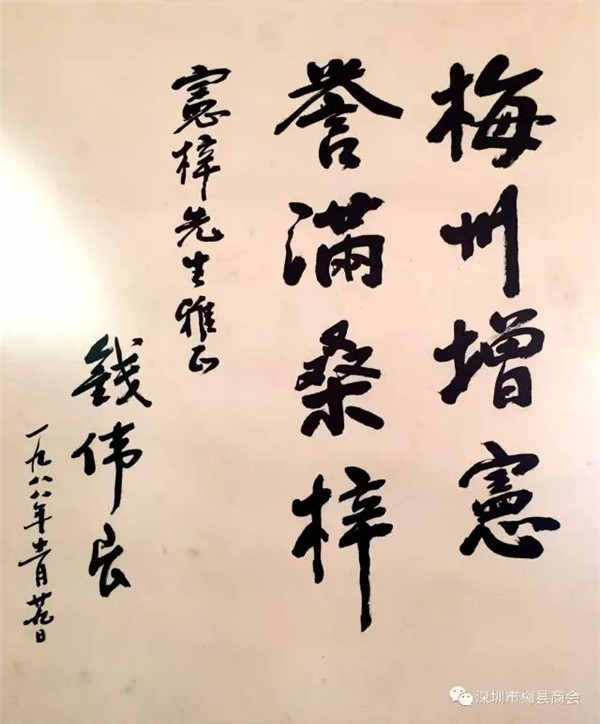 梅州增憲
誉滿桑梓
憲梓先生雅正
錢伟长
一九八八年十一月廿九日
深圳市梅县商会